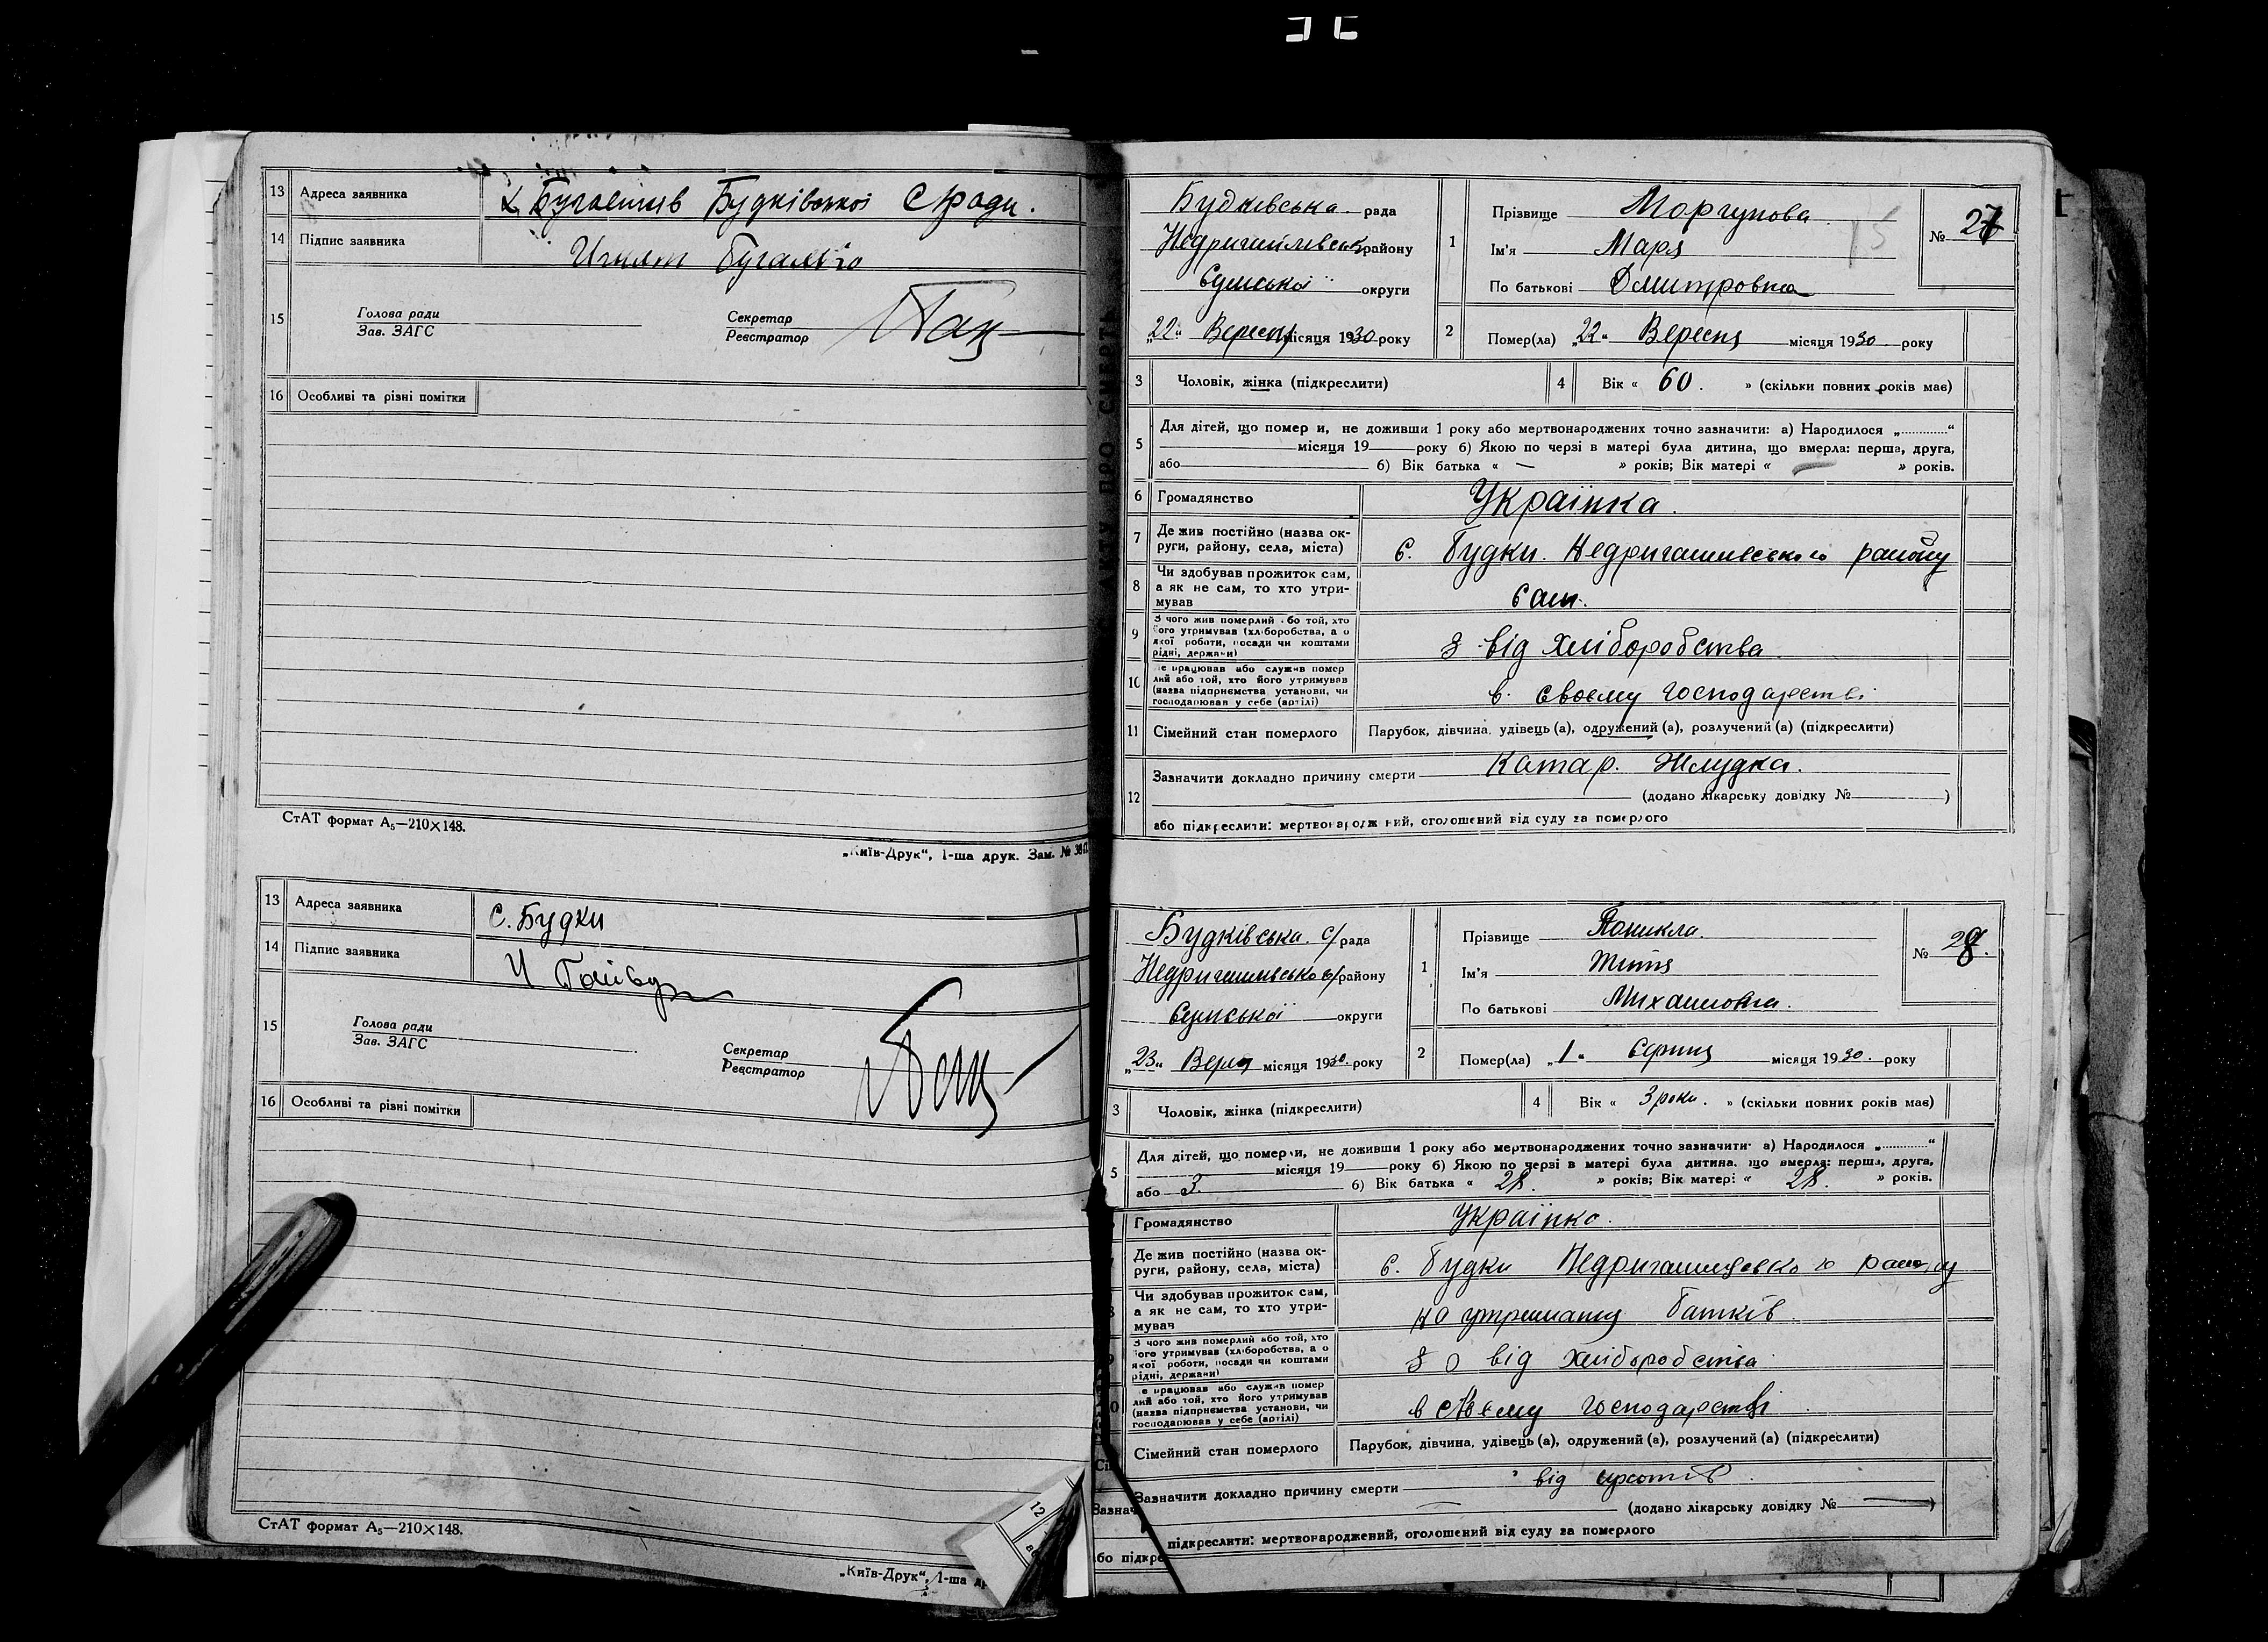 13 Адреса заявника Будківської С ради.
14 Підпис заявника
15 Голова ради
Зав. ЗАГС
Секретар
Реєстратор
16 Особливі та різні помітки
СтАТ формат А5—210×148.
„Київ-Друк“, 1-ша друк. Зам. №
13 Адреса заявника с. Будки
14 Підпис заявника
15 Голова ради
Зав. ЗАГС
Секретар
Реєстратор
16 Особливі та різні помітки
СтАТ формат А5—210×148.
„Київ-Друк“, 1-ша
АКТУ ПРО СМЕРТЬ
Будківська рада
району
Сумської округи
„22“ Вересня місяця 1930 року
1 Прізвище Моргунова
Ім'я Маря
По батькові Дмитровна
№ 27
2 Помер(ла) „22“ Вересня місяця 1930 року
3 Чоловік, жінка (підкреслити)
4 Вік « 60. » (скільки повних років має)
5 Для дітей, що помер и, не доживши 1 року або мертвонароджених точно зазначити: а) Народилося „............“
місяця 19 року б) Якою по черзі в матері була дитина, що вмерла: перша, друга,
або б) Вік батька « — » років; Вік матері « — » років.
6 Громадянство Українка.
7 Де жив постійно (назва ок-
руги, району, села, міста) с. Будки. Недригайлівського району
8 Чи здобував прожиток сам,
а як не сам, то хто утри-
мував сам.
9 З чого жив померлий або той, хто
його утримував (хліборобства, а о
якої роботи, посади чи коштами
рідні, держави) від хліборобства
10 е працював або служив помер
лий або той, хто його утримував
(назва підприємства установи, чи
господарював у себе (артілі) в своєму господарстві
11 Сімейний стан померлого Парубок, дівчина, удівець (а), одружений (а), розлучений (а) (підкреслити)
12 Зазначити докладно причину смерти Катар. Жлудка.
(додано лікарську довідку № )
або підкреслити: мертвонароджений, оголошений від суду за померлого
Будківська с/рада
району
Сумської округи
„23“ місяця 1930 року
1 Прізвище Поникла.
Ім'я
По батькові Михайловна.
№ 28.
2 Помер(ла) „1“ Серпня місяця 1930 року
3 Чоловік, жінка (підкреслити)
4 Вік « 3 роки. » (скільки повних років має)
5 Для дітей, що померли, не доживши 1 року або мертвонароджених точно зазначити: а) Народилося „............“
місяця 19 року б) Якою по черзі в матері була дитина, що вмерла: перша, друга,
або 3. б) Вік батька « 28. » років; Вік матері « 28. » років.
Громадянство Українка.
Де жив постійно (назва ок-
руги, району, села, міста) с. Будки Недригайлівського району
Чи здобував прожиток сам,
а як не сам, то хто утри-
мував на утриманню батків.
З чого жив померлий або той, хто
його утримував (хліборобства, а о
якої роботи, посади чи коштами
рідні, держави) від хліборобства
е працював або служив помер
лий або той, хто його утримував
(назва підприємства установи, чи
господарював у себе (артілі) в своєму господарстві
Сімейний стан померлого Парубок, дівчина, удівець (а), одружений (а), розлучений (а) (підкреслити)
Зазначити докладно причину смерти від
(додано лікарську довідку № )
підкреслити: мертвонароджений, оголошений від суду за померлого